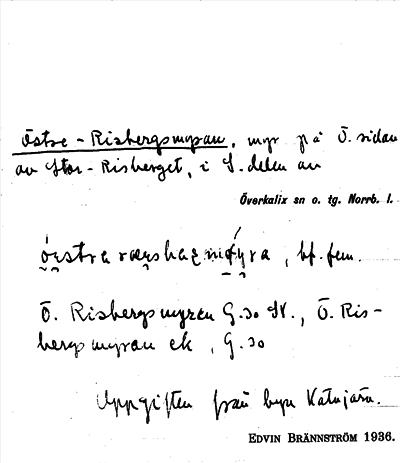 Östre-Risbergsmyran, myr på Ö. sidan
av Stor-Risberget, i S. delen av
Överkalix sn o. tg. Norrb. l.
, bf. fem.
Ö. Risbergsmyran G.30 SV., Ö. Ris-
bergsmyran ek, G.30
Uppgiften från byn Katujärv.
EDVIN BRÄNNSTRÖM 1936.